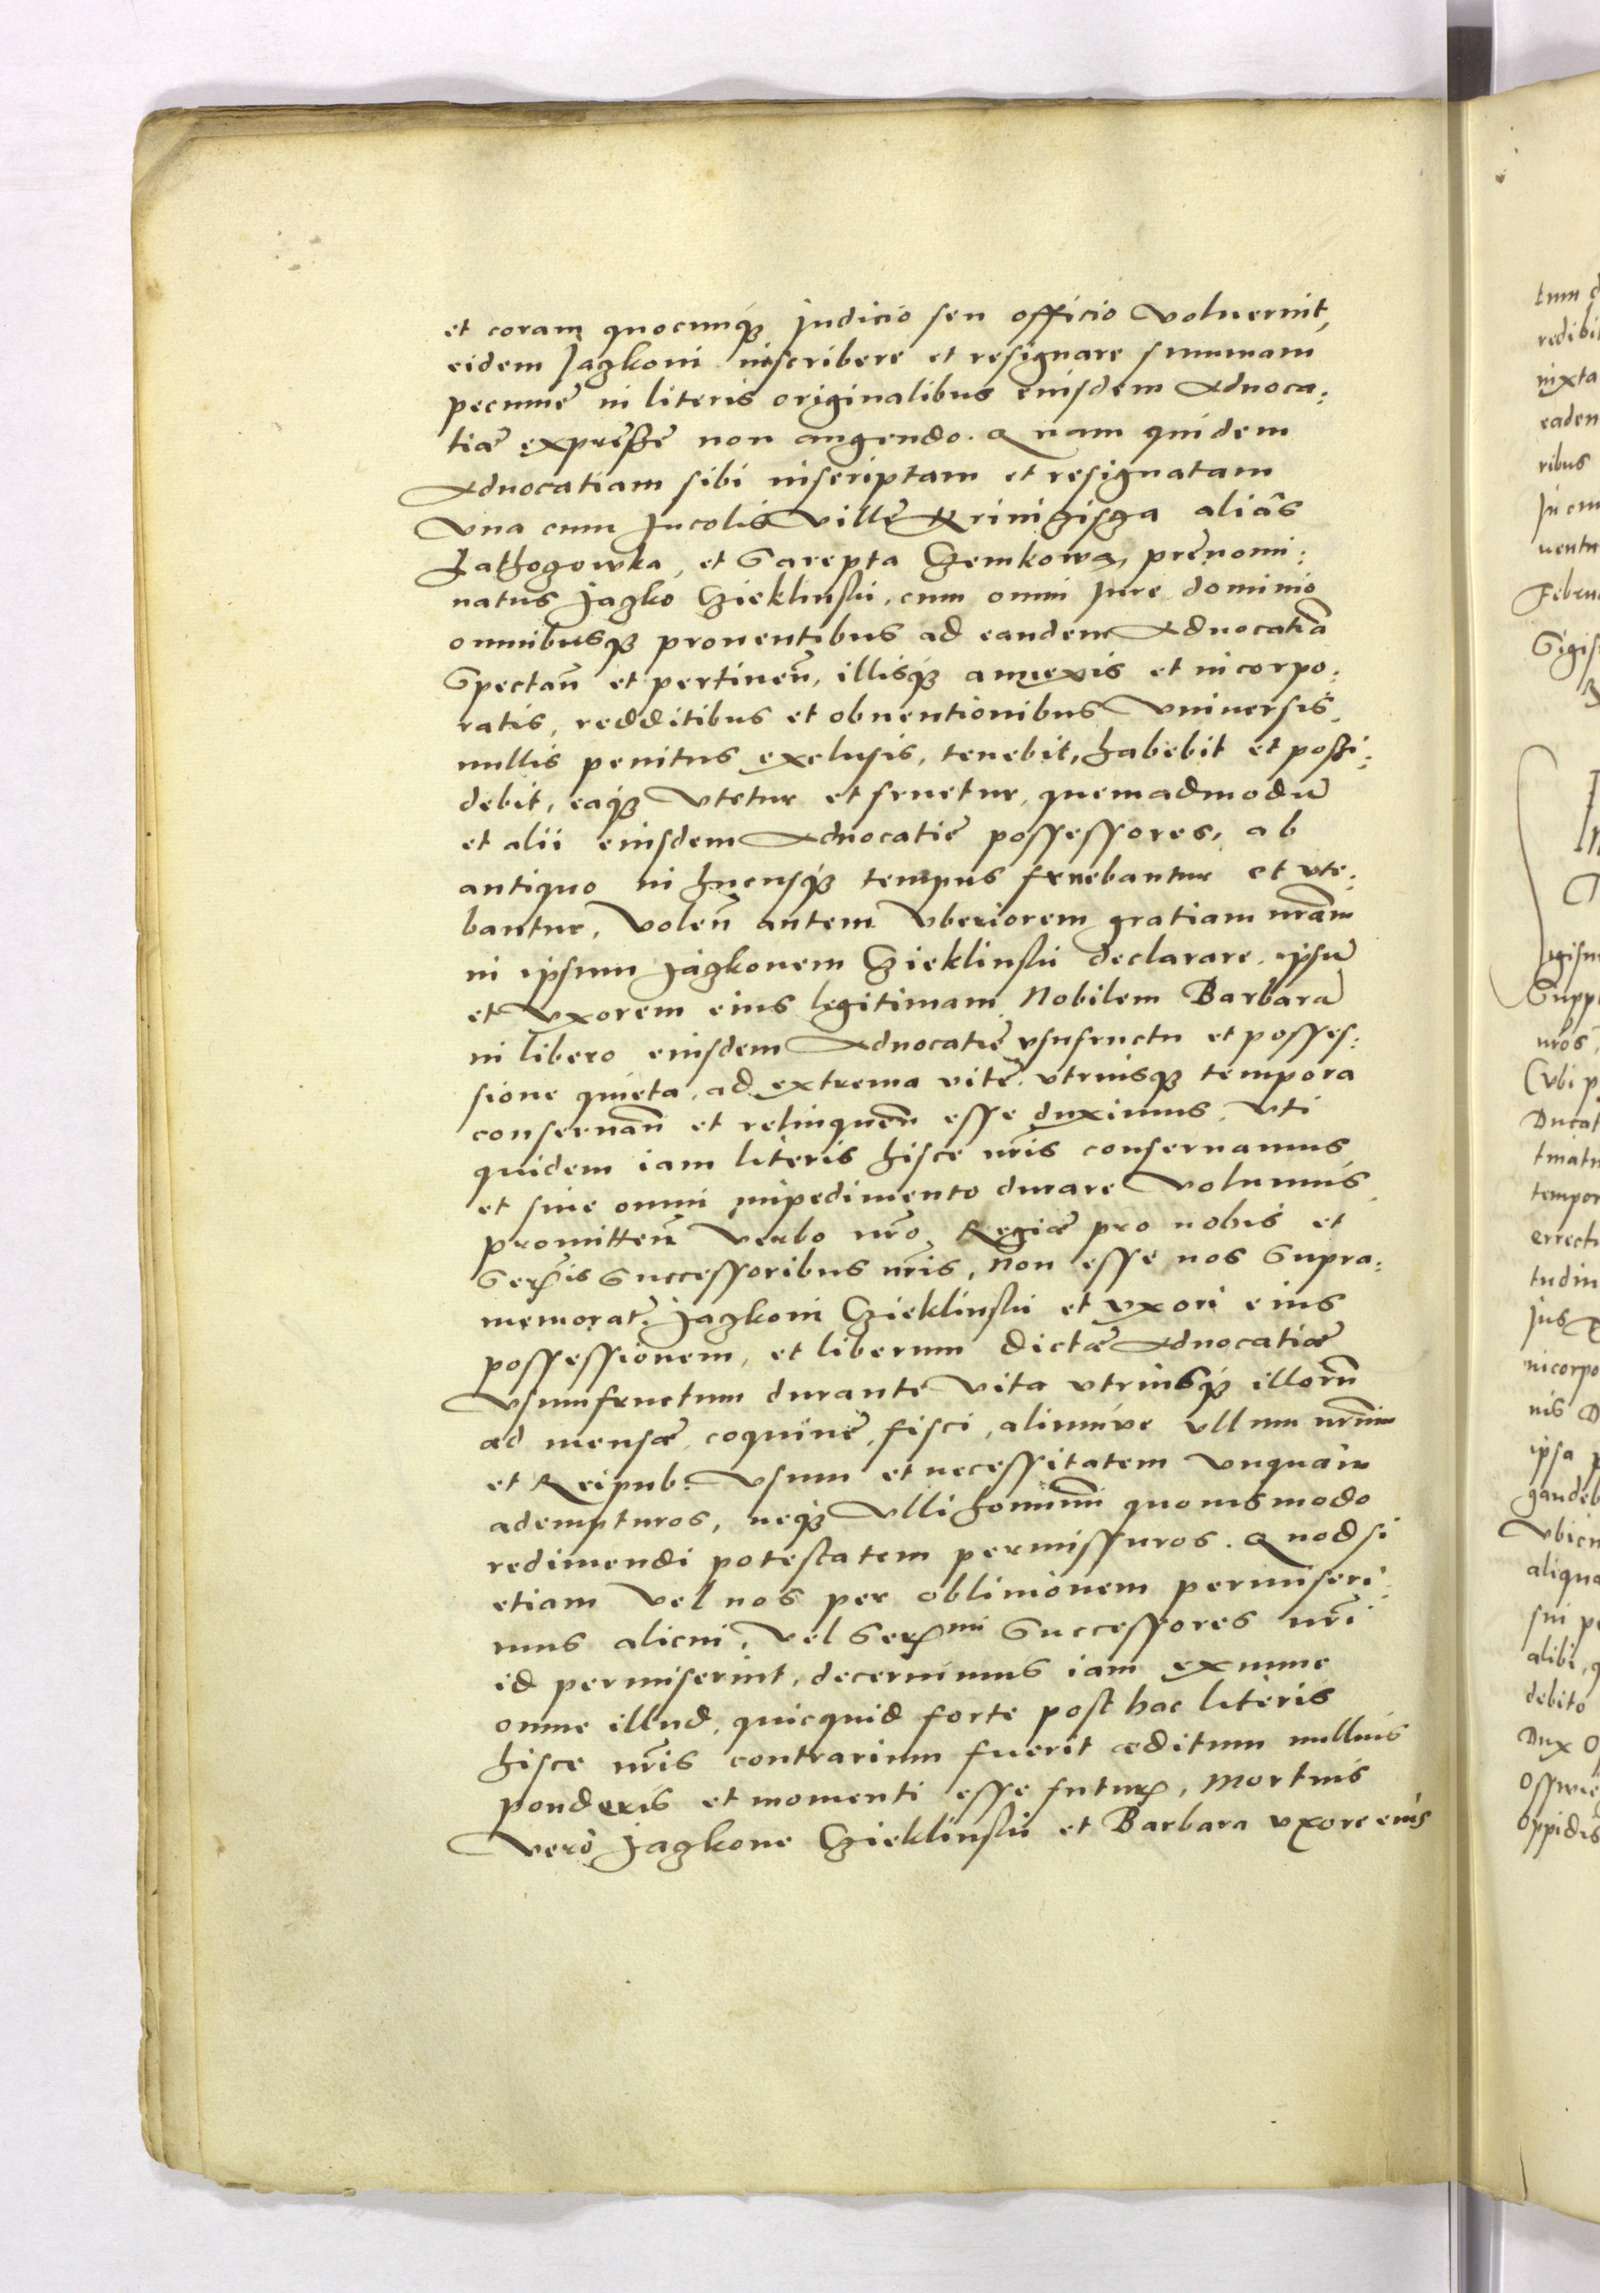 et coram quocunq₃ Judicio seu officio voluerint,
eidem Jaczkoni inscribere et resignare summam
pecuniȩ in literis originalibus eiusdem Aduoca:
tiæ expressȩ non augendo. Quam quidem
Aduocatiam sibi inscriptam et resignatam
vna cum Incolis villȩ aliâs
et Sarepta prȩnomi:
natus Jaczko Czieklinskii, cum omni Jure dominio
omnibusq₃ prouentibus ad eandem Aduocatiā
Spectan̄ et pertinen̄, illisq₃ annexis et incorpo:
ratis, redditibus et obuentionibus vniuersis,
nullis penitus exclusis, tenebit, habebit et possi:
debit, eaq₃ vtetur et fruetur, quemadmodū
et alii eiusdem Aduocatiȩ possessores, ab
antiquo in hucusq₃ tempus fruebantur et vte:
bantur, volen̄ autem vberiorem gratiam nr̄am
in ipsum Jaczkonem Czieklinskii declarare, ipsū
et vxorem eius legitimam Nobilem Barbarā
in libero eiusdem Aduocatiȩ vsufructu et posses:
sione quieta, ad extrema vitȩ vtriusq₃ tempora
conseruan̄ et relinquen̄ esse duximus, vti
quidem iam literis hisce nr̄is conseruamus
et sine omni impedimento durare volumus,
promitten̄ verbo nr̄o Regio pro nobis et
Ser^mis Successoribus nr̄is, non esse nos Supra:
memorat. Jaczkoni Czieklinskii et vxori eius
possessionem, et liberum dictæ Aduocatiæ
vsumfructum durante vita vtriusq₃ illorū
ad mensæ, coquinȩ, fisci, aliumve vllum nr̄um
et Reipub: vsum et necessitatem vnquam
adempturos, neq₃ vlli hominum quouismodo
redimendi potestatem permissuros. Quod si
etiam vel nos per obliuionem permiseri:
mus alicui, vel Ser^mi Successores nr̄i
id permiserint, decernimus iam ex nunc
omne illud, quicquid forte post hac literis
hisce nr̄is contrarium fuerit æditum nullius
ponderis et momenti esse futur, Mortuis
verò Jaczkone Czieklinskii et Barbara vxore eius